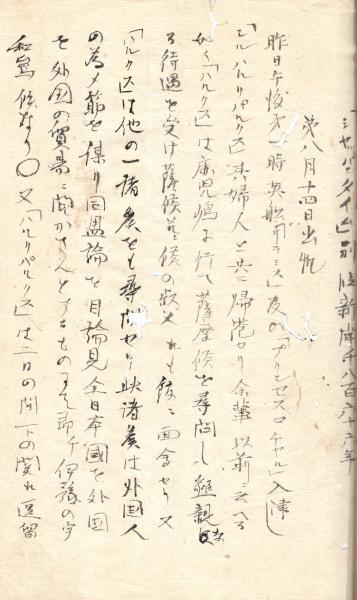 ジャパンタイムス別段新聞千八百六十六年
第八月十四日出版
昨日午後第一時英船サラミス及ひプリンセスロヤル入津し
「シルハルリパルクス」其婦人と共に帰港せり余輩以前云へる
如く「パルクス」は鹿児嶋に行て薩摩侯を尋問し懇親な
る待遇を受け薩侯並に侯の叔父れも彼に面会せり又
「パルクス」は他の一諸矦をも尋問せり此諸矦は外国人
の為メ節を謀り同盟論を目論見全日本国を外国
と外国の貿易に開かさんとするものにて即チ伊豫の宇
和嶌侯なり○又「ハルリパルクス」は二日の間下の関に逗留